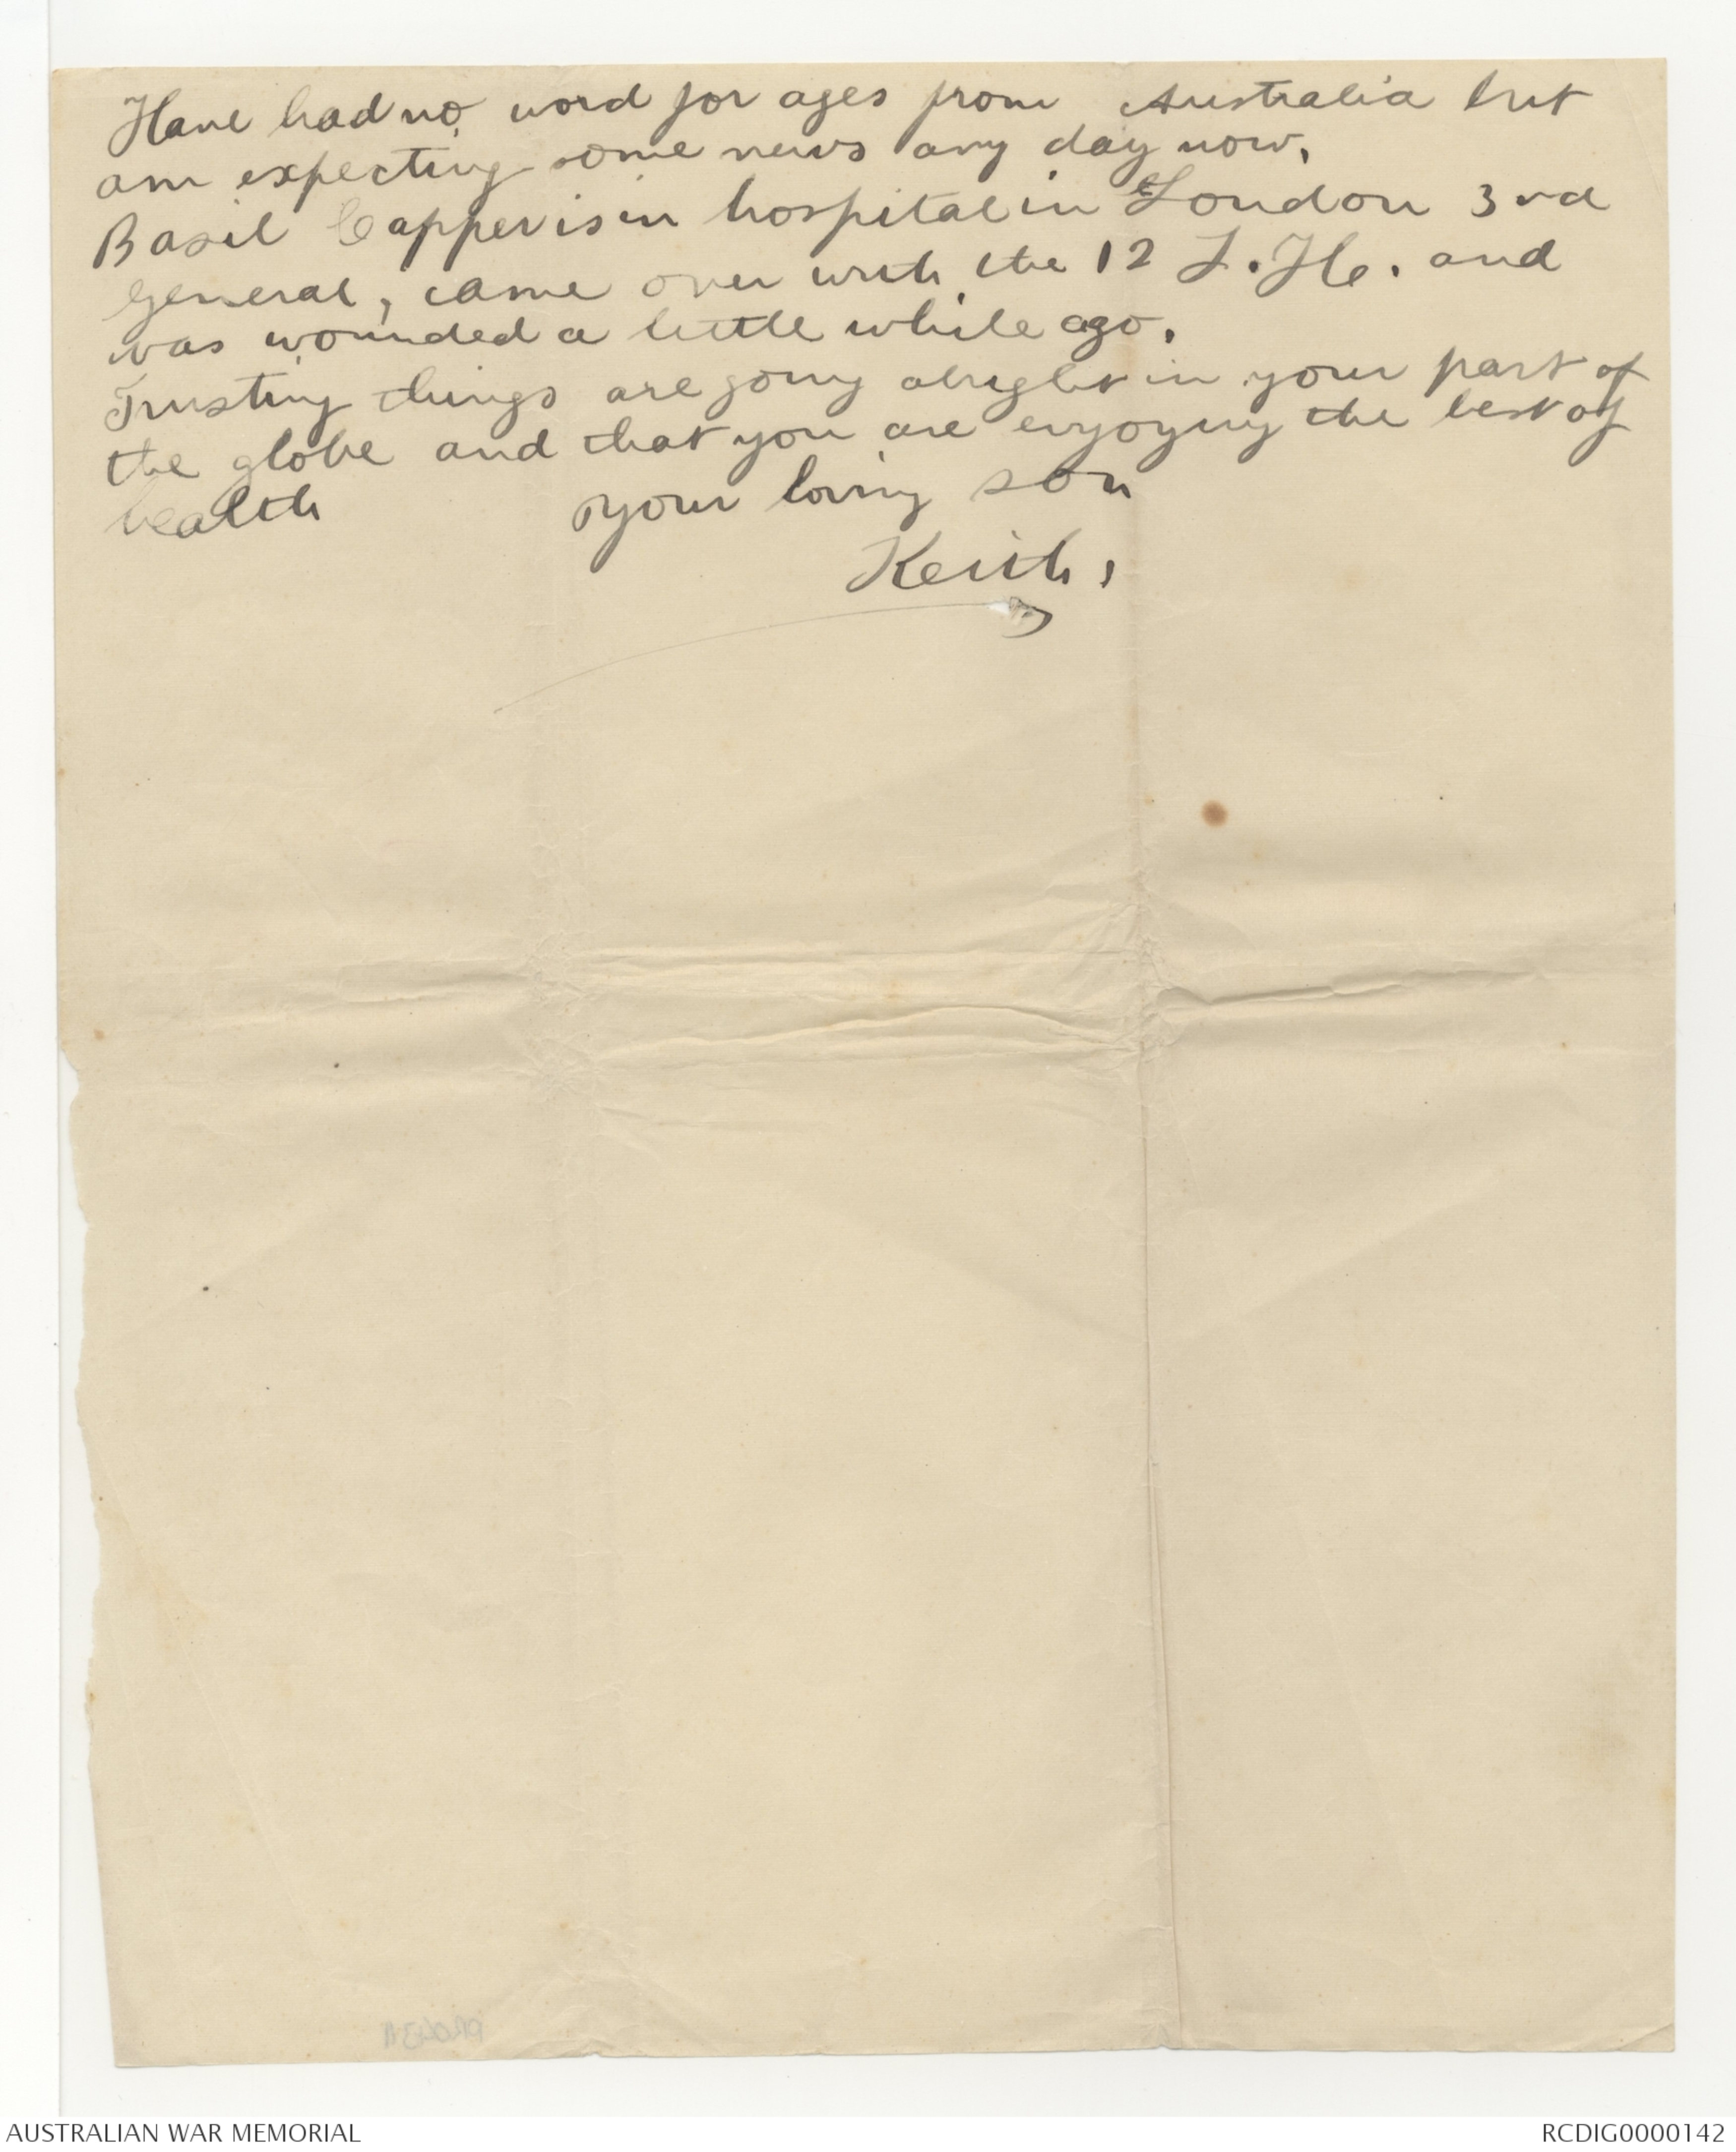 Have had no word for ages from Australia but
am expecting some news any day now.
Basil Capper is in hospital in London 3rd
General, came over with the 12 L.H. and
was wounded a little while ago.
Trusting things are going alright in your part of
the globe and that you are enjoying the best of
health your loving son
Keith.
AUSTRALIAN WAR MEMORIAL
RCDIG0000142